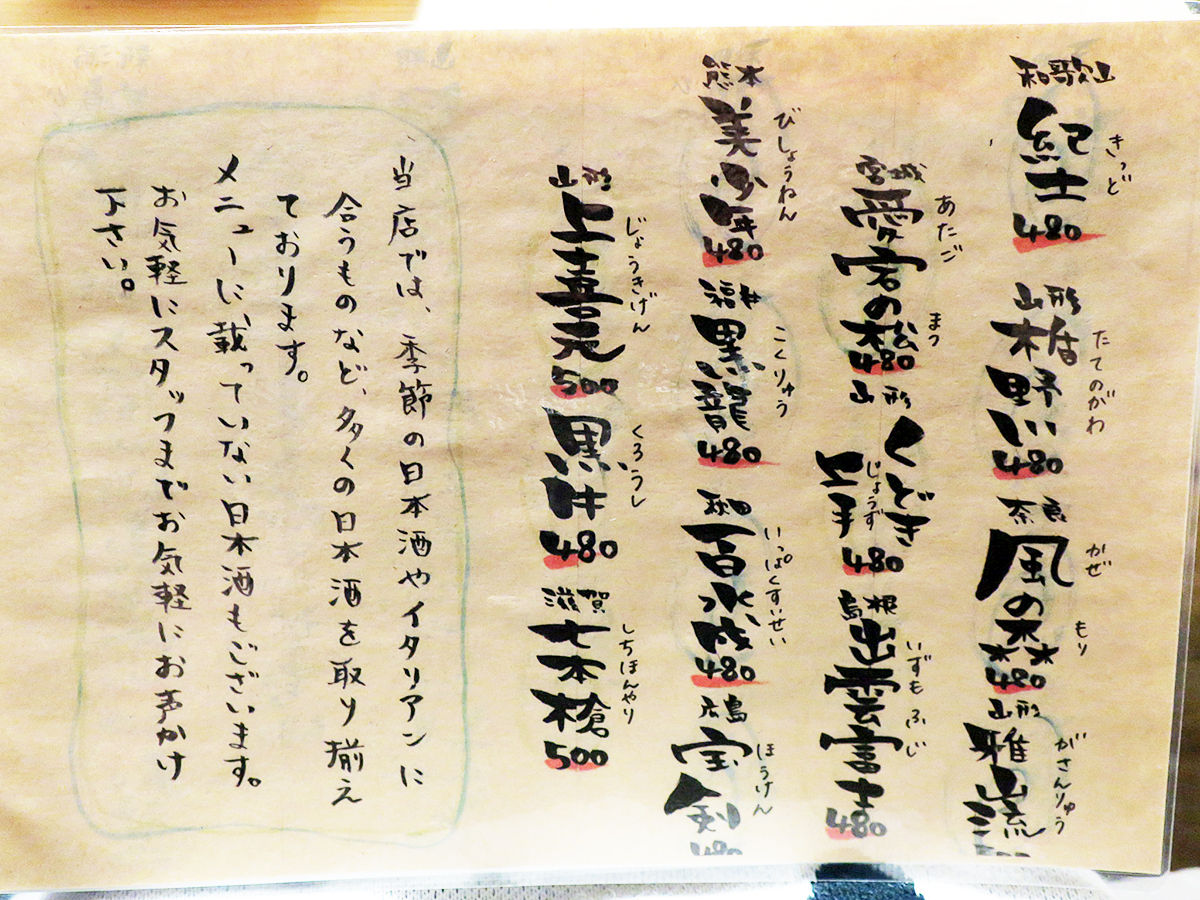 和歌山
紀土
きっど
480
山形
楯野川
たてのがわ
480
奈良
風の森
かぜ もり
480
山形
雅山流
がさんりゅう
宮城
愛宕の松
あたご まつ
480
山形
くどき上手
じょうず
480
島根
出雲富士
いずも ふじ
480
熊本
美少年
びしょうねん
480
福井
黒龍
こくりゅう
480
秋田
一白水成
いっぱくすいせい
480
広島
宝剣
ほうけん
480
山形
上喜元
じょうきげん
500
黒牛
くろうし
480
滋賀
七本槍
しちほんやり
500
当店では、季節の日本酒やイタリアンに
合うものなど、多くの日本酒を取り揃え
ております。
メニューに載っていない日本酒もございます。
お気軽にスタッフまでお気軽にお声かけ
下さい。